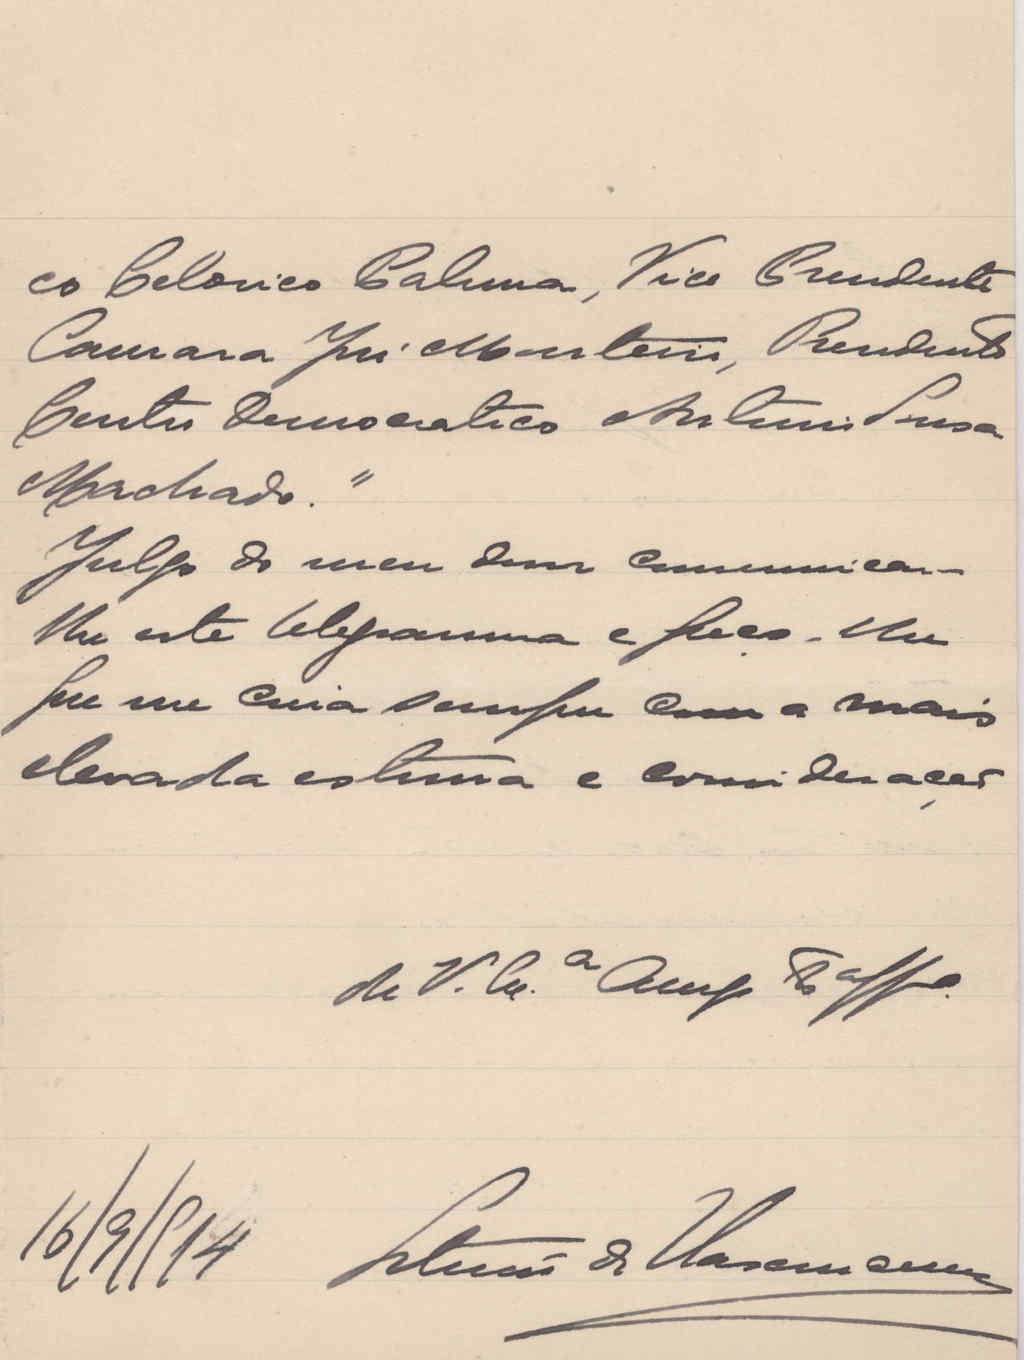 co Celorico Palma, Vice Presidente
Camara José Monteiro, Presidente
Centro Democratico Antonio Sousa
Machado."
Julgo do meu dever comunicar-
lhe este telegramma e peço-lhe
que me creia sempre com a mais
elevada estima e consideração
de V. Ex.ª Amg
16/9/914
de Vasconcellos